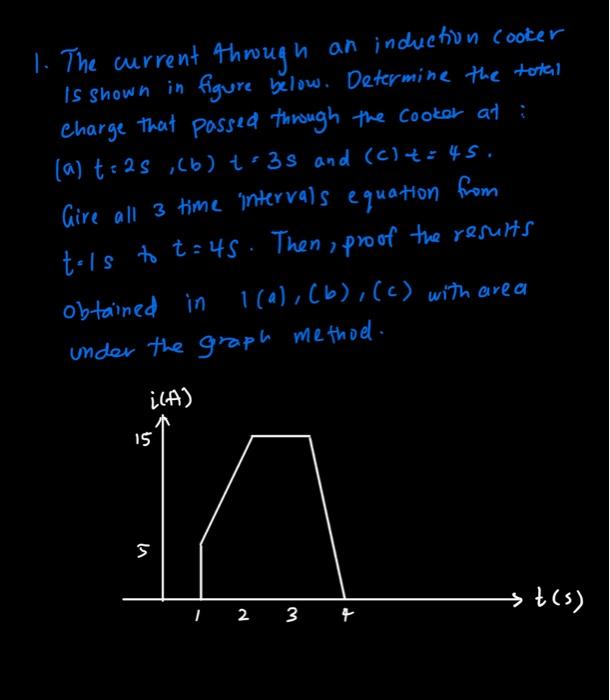 1. The current through an induction cooker
Is shown in figure below. Determine the total
charge that passed through the cooker at :
(a) t = 2s , (b) t = 3s and (c) t = 4s.
Give all 3 time intervals equation from
t=1s to t = 4s. Then, proof the results
obtained in 1(a), (b), (c) with area
under the graph method.
i(A)
15
5
1 2 3 4
t(s)